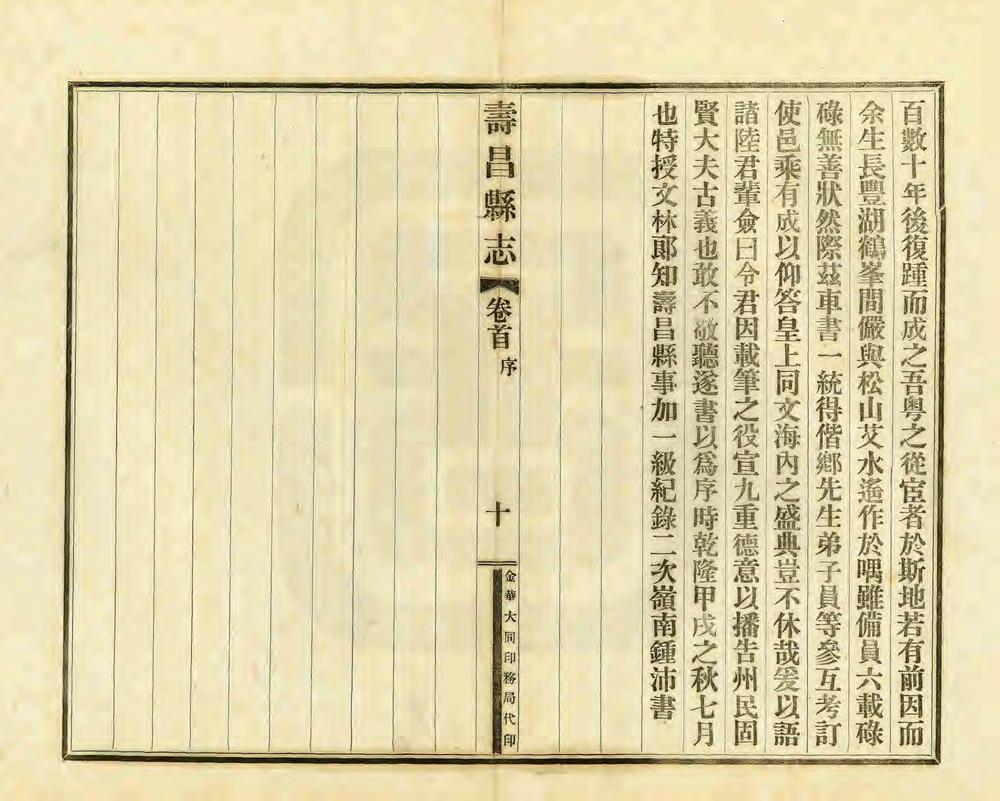 百數十年後復踵而成之吾粵之從宦者於斯地若有前因而
余生長豐湖鶴峯間儼與松山艾水遙作於喁雖備員六載碌
碌無善狀然際茲車書一統得偕鄉先生弟子員等參互考訂
使邑乘有成以仰答皇上同文海內之盛典豈不休哉爰以語
諸陸君輩僉曰令君因載筆之役宣九重德意以播告州民固
賢大夫古義也敢不敬聽遂書以爲序時乾隆甲戌之秋七月
也特授文林郞知壽昌縣事加一級紀錄二次嶺南鍾沛書
壽昌縣志 卷首 序 十 金華大同印務局代印